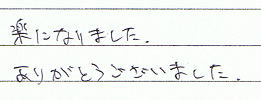 楽になりました.
ありがとうございました.